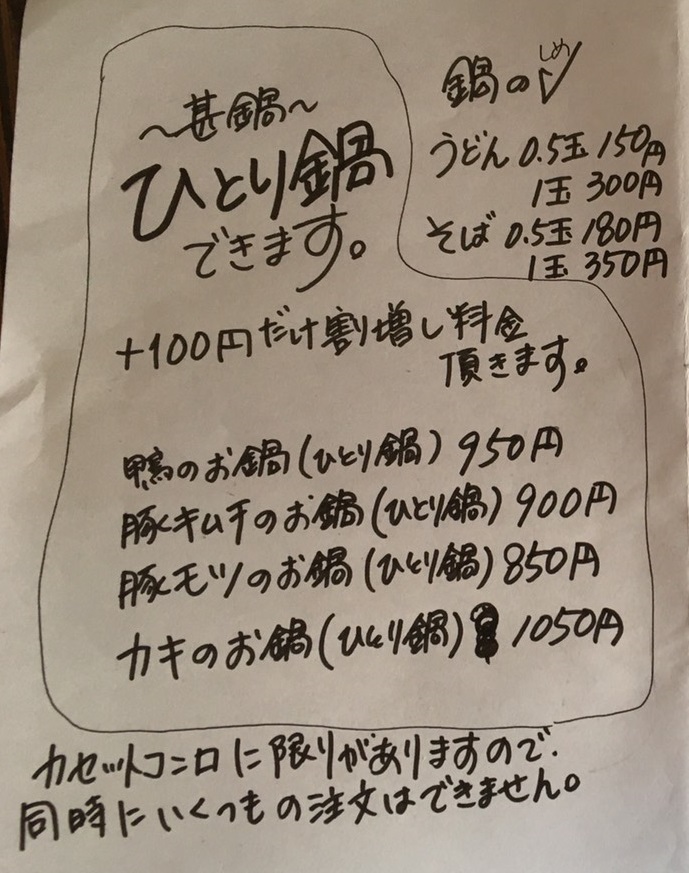 〜甚鍋〜
ひとり鍋
できます。
+100円だけ割増し料金
頂きます。
鴨のお鍋(ひとり鍋) 950円
豚キムチのお鍋(ひとり鍋) 900円
豚モツのお鍋(ひとり鍋) 850円
カキのお鍋(ひとり鍋) 1050円
しめ
鍋の〆
うどん 0.5玉 150円
1玉 300円
そば 0.5玉 180円
1玉 350円
カセットコンロに限りがありますので、
同時にいくつもの注文はできません。